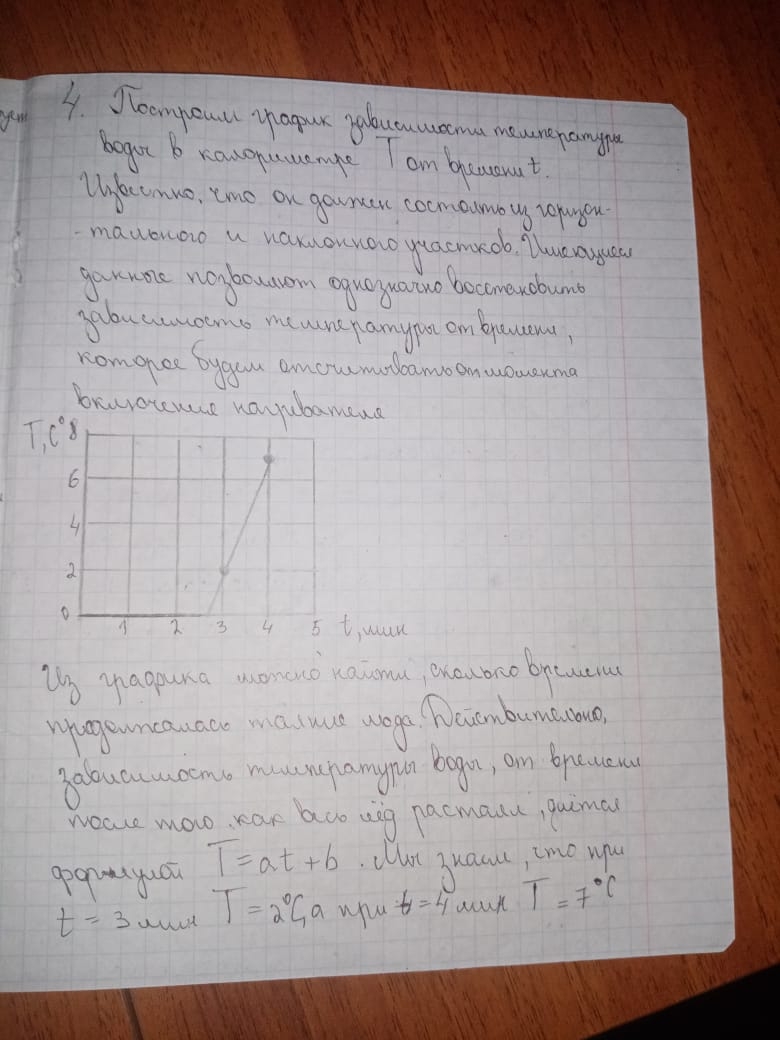 4. Построим график зависимости температуры
воды в калориметре T от времени t.
Известно, что он должен состоять из горизон-
-тального и наклонного участков. Имеющиеся
данные позволяют однозначно восстановить
зависимость температуры от времени,
которое будем отсчитывать от момента
включение нагревателя
T, C° 8
6
4
2
0
1 2 3 4 5 t, мин
Из графика можно найти, сколько времени
продолжалась таяние льда. Действительно,
зависимость температуры воды, от времени
после того, как весь лёд растаял, даётся
формулой T = at + b. Мы знаем, что при
t = 3 мин T = 2°C, а при t = 4 мин T = 7°C